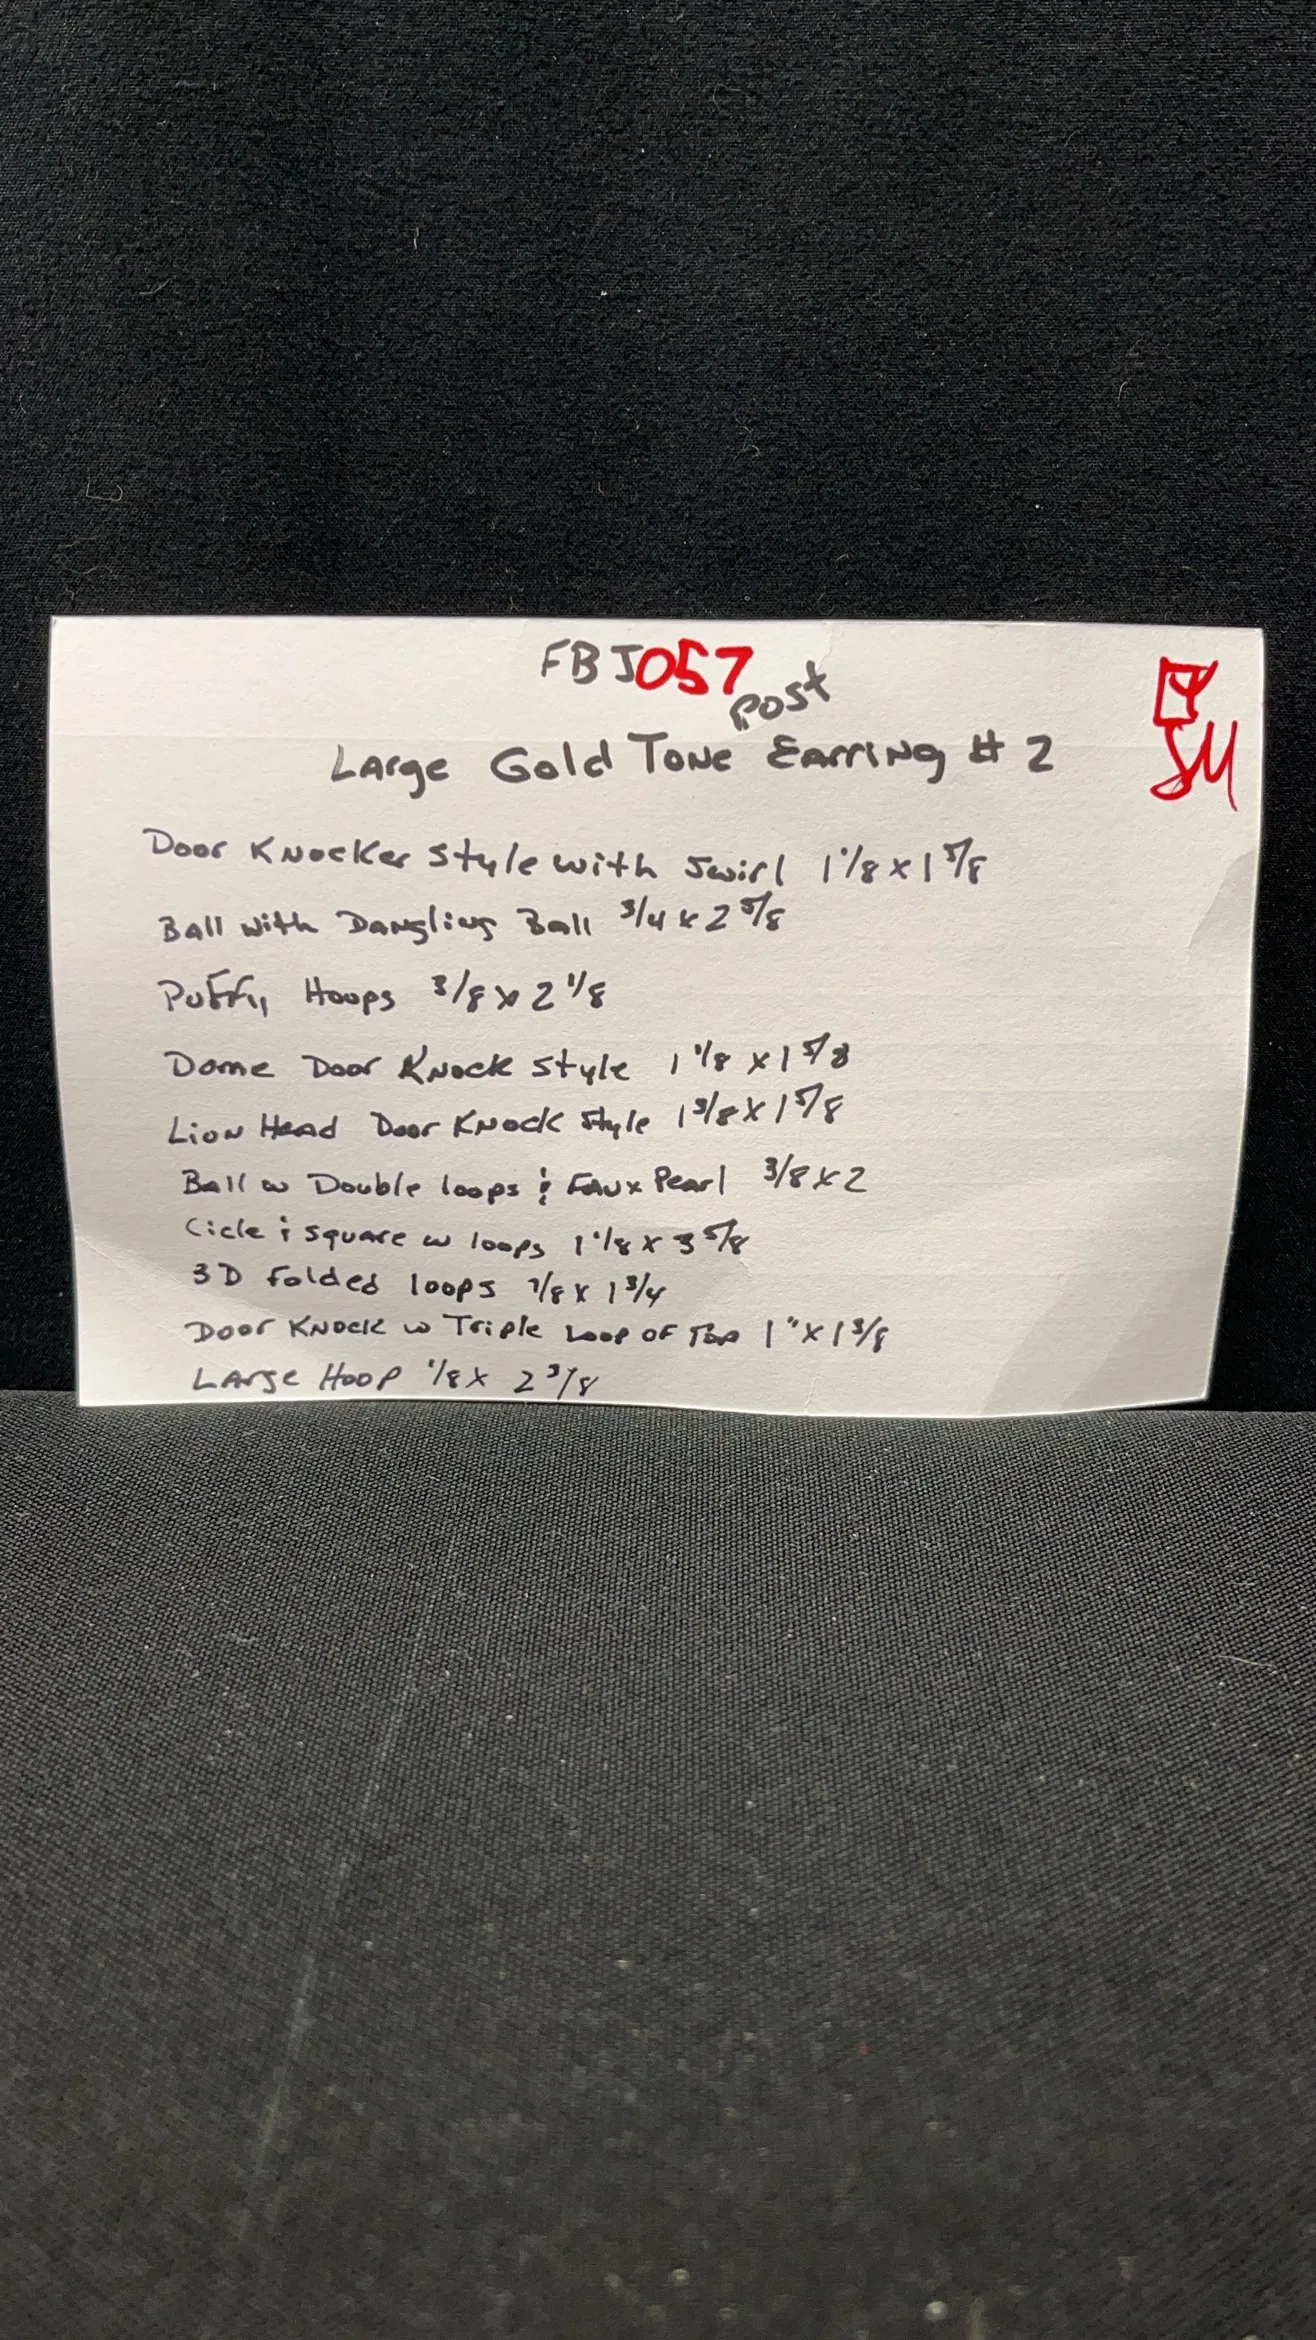 FBJ057
post
Large Gold Tone Earring # 2
Door Knocker Style with Swirl 1 1/8 x 1 5/8
Ball with Dangling Ball 3/4 x 2 5/8
Puffy Hoops 3/8 x 2 1/8
Dome Door Knock Style 1 1/8 x 1 5/8
Lion Head Door Knock Style 1 3/8 x 1 5/8
Ball w Double loops & Faux Pearl 3/8 x 2
Cicle & square w loops 1 1/8 x 3 5/8
3D folded loops 7/8 x 1 3/4
Door Knock w Triple Loop of Top 1" x 1 3/8
Large Hoop 1/8 x 2 3/8
SM